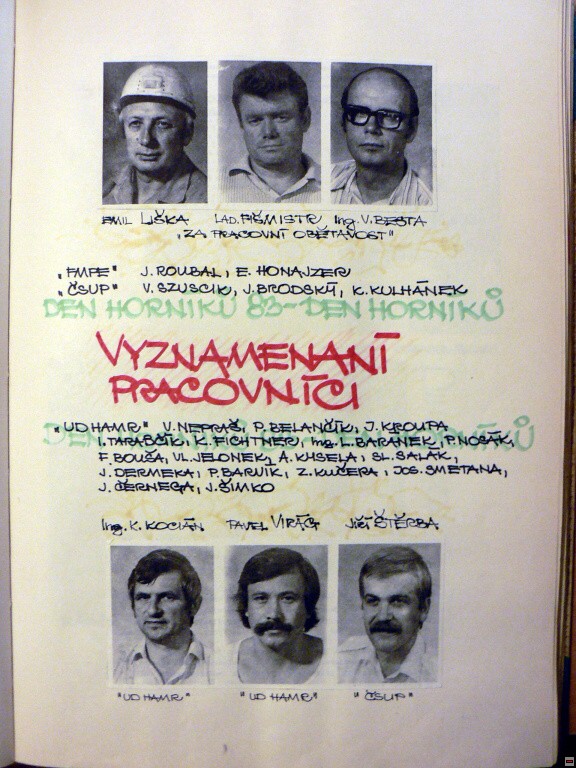 EMIL LIŠKA LAD. PIŠMISTR, Ing. V. BEŠTA
"ZA PRACOVNÍ OBĚTAVOST"
"FMPE" J. ROUBAL, E. HONAJZER
"ČSUP" V. SZUSCIK, J. BRODSKÝ, K. KULHÁNEK
DEN HORNÍKŮ 83-DEN HORNÍKŮ
VYZNAMENANÍ
PRACOVNÍCI
"UD HAMR" V. NEPRAŠ, P. BELANČÍK, J. KROUPA
I. TARABČÍK, K. FICHTNER, Ing. L. BARÁNEK, P. NOSÁK,
F. BOUŠA, VL. JELONEK, A. KYSELA, SL. SALÁK,
J. DERMEKA, P. BARVIK, Z. KUČERA, JOS. SMETANA,
J. ČERNEGA, J. ŠIMKO
Ing. K. KOCIÁN PAVEL VIRÁG JIŘÍ ŠTĚRBA
"UD HAMR" "UD HAMR" "ČSUP"